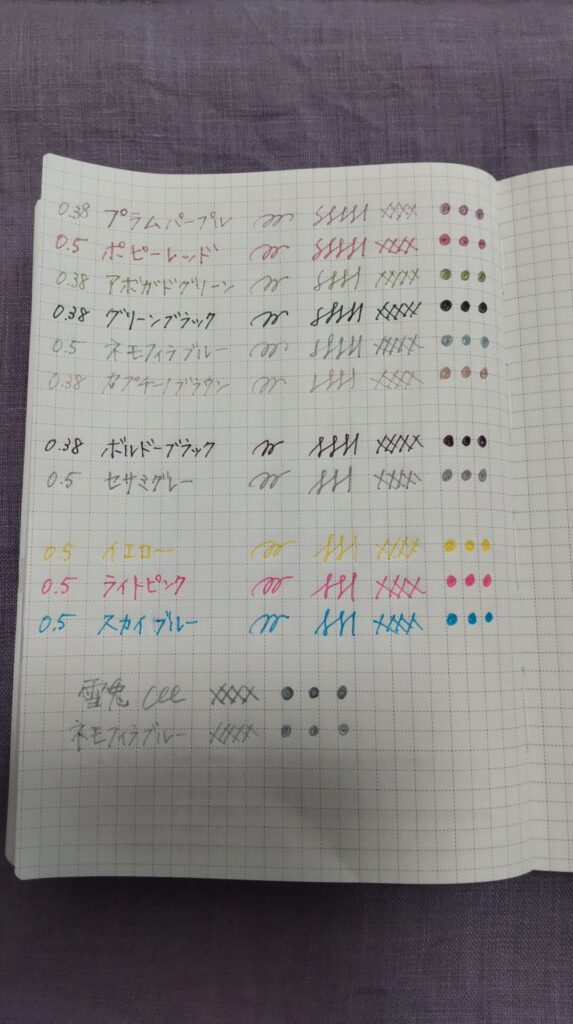 0.38 プラムパープル
0.5 ポピーレッド
0.38 アボガドグリーン
0.38 グリーンブラック
0.5 ネモフィラブルー
0.38 カプチーノブラウン
0.38 ボルドーブラック
0.5 セサミグレー
0.5 イエロー
0.5 ライトピンク
0.5 スカイブルー
雪兎
ネモフィラブルー